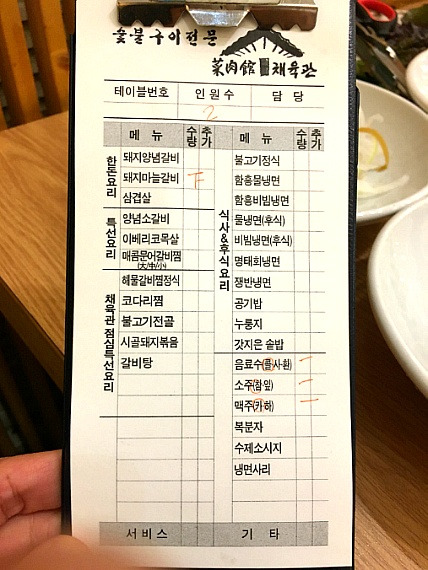 숯불구이전문
菜肉館 채육관
테이블번호 인원수 담당
2
메뉴 수량 추가
한돈요리
돼지양념갈비
돼지마늘갈비 下
삼겹살
특선요리
양념소갈비
이베리코목살
매콤문어갈비찜
(大/中/小)
채육관 점심특선요리
해물갈비찜정식
코다리찜
불고기전골
시골돼지볶음
갈비탕
메뉴 수량 추가
식사&후식요리
불고기정식
함흥물냉면
함흥비빔냉면
물냉면(후식)
비빔냉면(후식)
명태회냉면
쟁반냉면
공기밥
누룽지
갓지은 솥밥
음료수(콜,사,환) 一
소주(참,잎) 一
맥주(카,하) 一
복분자
수제소시지
냉면사리
서비스 기타